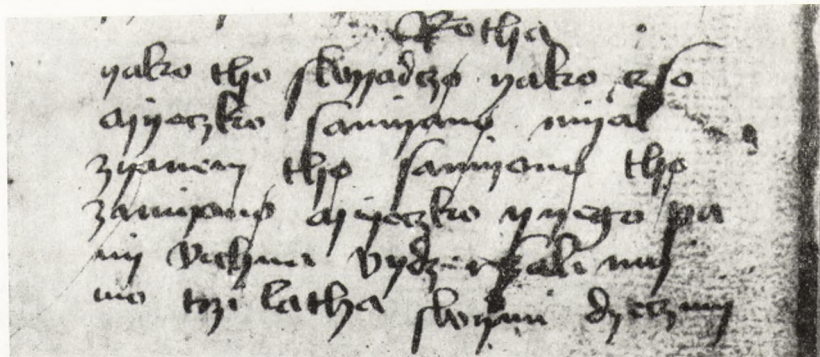 Rotha
yako tho swyadczø yako czso
Myeczko samyanø myal
zyanem thø samyanø thø
zamyanø Myeczko y yego pa
ny vichna vydzerszali my
mo trzi latha swymi dzeczmy